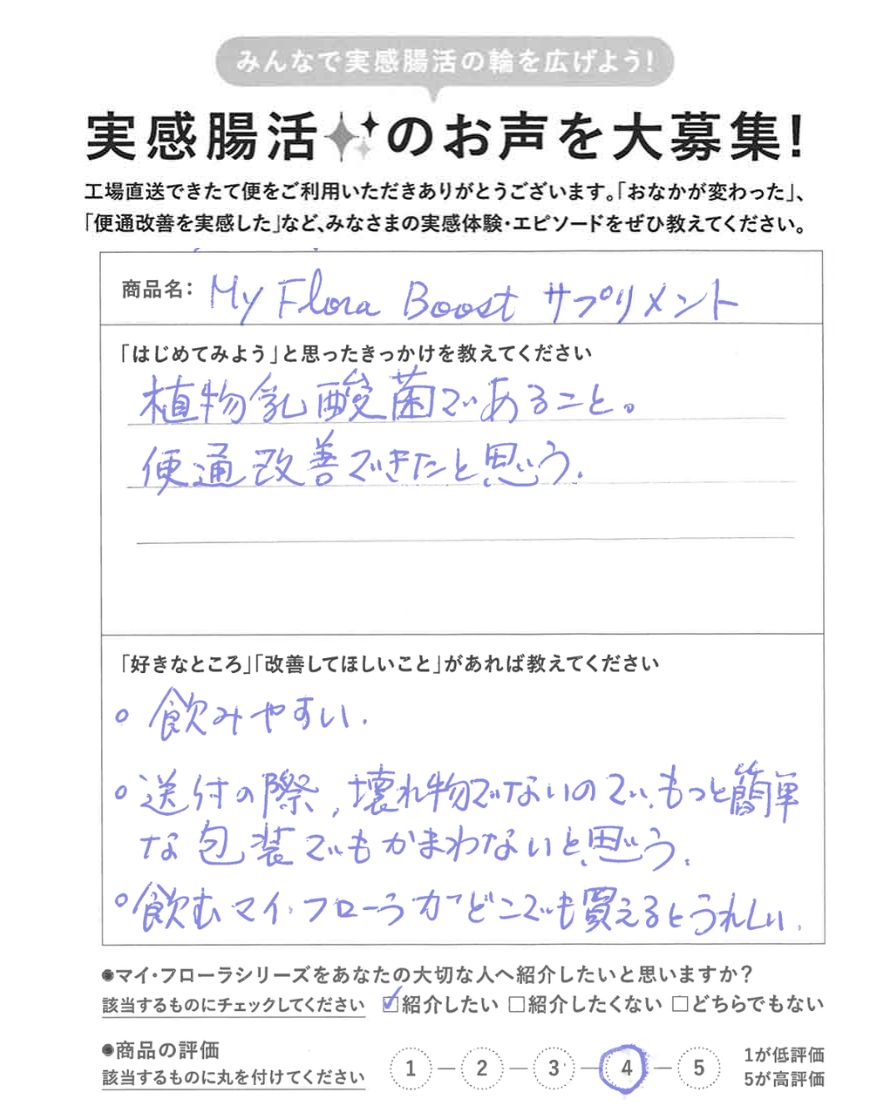 みんなで実感腸活の輪を広げよう!
実感腸活のお声を大募集!
工場直送できたて便をご利用いただきありがとうございます。「おなかが変わった」、
「便通改善を実感した」など、みなさまの実感体験・エピソードをぜひ教えてください。
商品名: My Flora Boost サプリメント
「はじめてみよう」と思ったきっかけを教えてください
植物乳酸菌であること。
便通改善できたと思う.
「好きなところ」「改善してほしいこと」があれば教えてください
○ 飲みやすい.
○ 送付の際, 壊れ物でないので、もっと簡単
な包装でもかまわないと思う.
○飲むマイ・フローラがどこでも買えるとうれしい.
●マイ・フローラシリーズをあなたの大切な人へ紹介したいと思いますか?
該当するものにチェックしてください ☑紹介したい □紹介したくない □どちらでもない
●商品の評価
該当するものに丸を付けてください 1 - 2 - 3 - 4 - 5
1が低評価
5が高評価